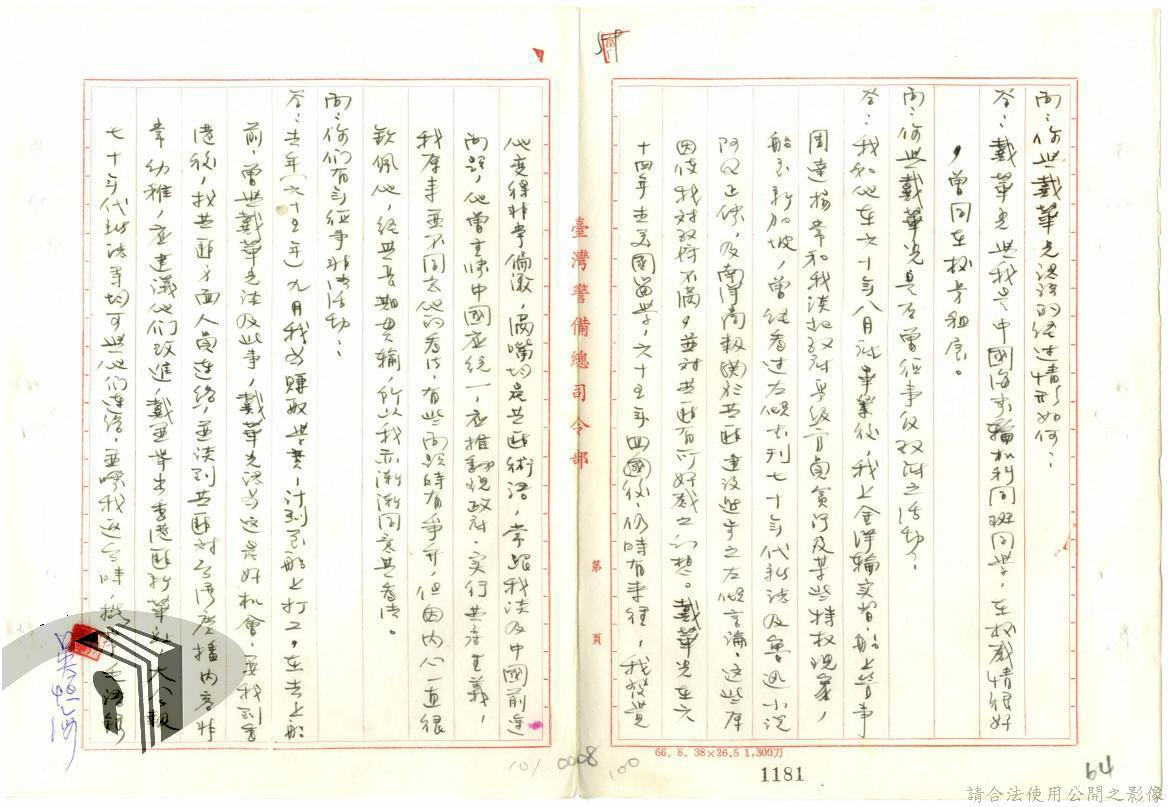 問：你與戴華光認識的經過情形如何？
答：戴華光與我是中國海專輪機科同班同學，在校感情很好
，曾同在校旁租房。
問：你與戴華光是否曾從事反政府之活動？
答：我和他在六十年八月 畢業後，我上金洋輪實習船上管事
周達揚常和我談起政府高級官員貪污及某些特权現象，
船至新加坡，曾經看过左傾书刊七十年代新誌及魯迅小说
阿Q正传，及南洋商報関於共匪建设進步之左傾言論，這些库
因使我对政府不滿，並对共匪有所好感之幻想。戴華光在六
十四年去美國留学，六十五年回國後，仍時有來往，我發覚
他变得非常偏激，滿嘴均是共匪術語，常跟我谈及中國前途
問題，他曾主張中國應統一，應推翻現政府，实行共產主義，
我原來並不同意他的看法，有些問題時有爭斤，但因内心一直很
欽佩他，経其長期灌輸，所以我亦漸漸同意其看法。
問：你们有無從事非法活动？
答：去年（六十五年）九月我为賺取学費，计划至船上打工，在去上船
前，曾與戴華光谈及此事，戴華光認为这是好机會，要我到香
港後，找共匪方面人員連絡，並谈到共匪对台湾廣播内容非
常幼稚，应建議他们改進，戴並举出香港匪新華社、大公報
七十年代新誌等均可與他们連絡，並囑我返台時，
臺灣警備總司令部
第 頁
66. 8. 38×26.5 1,300刀
1181
64
101 0008 100
請合法使用公開之影像